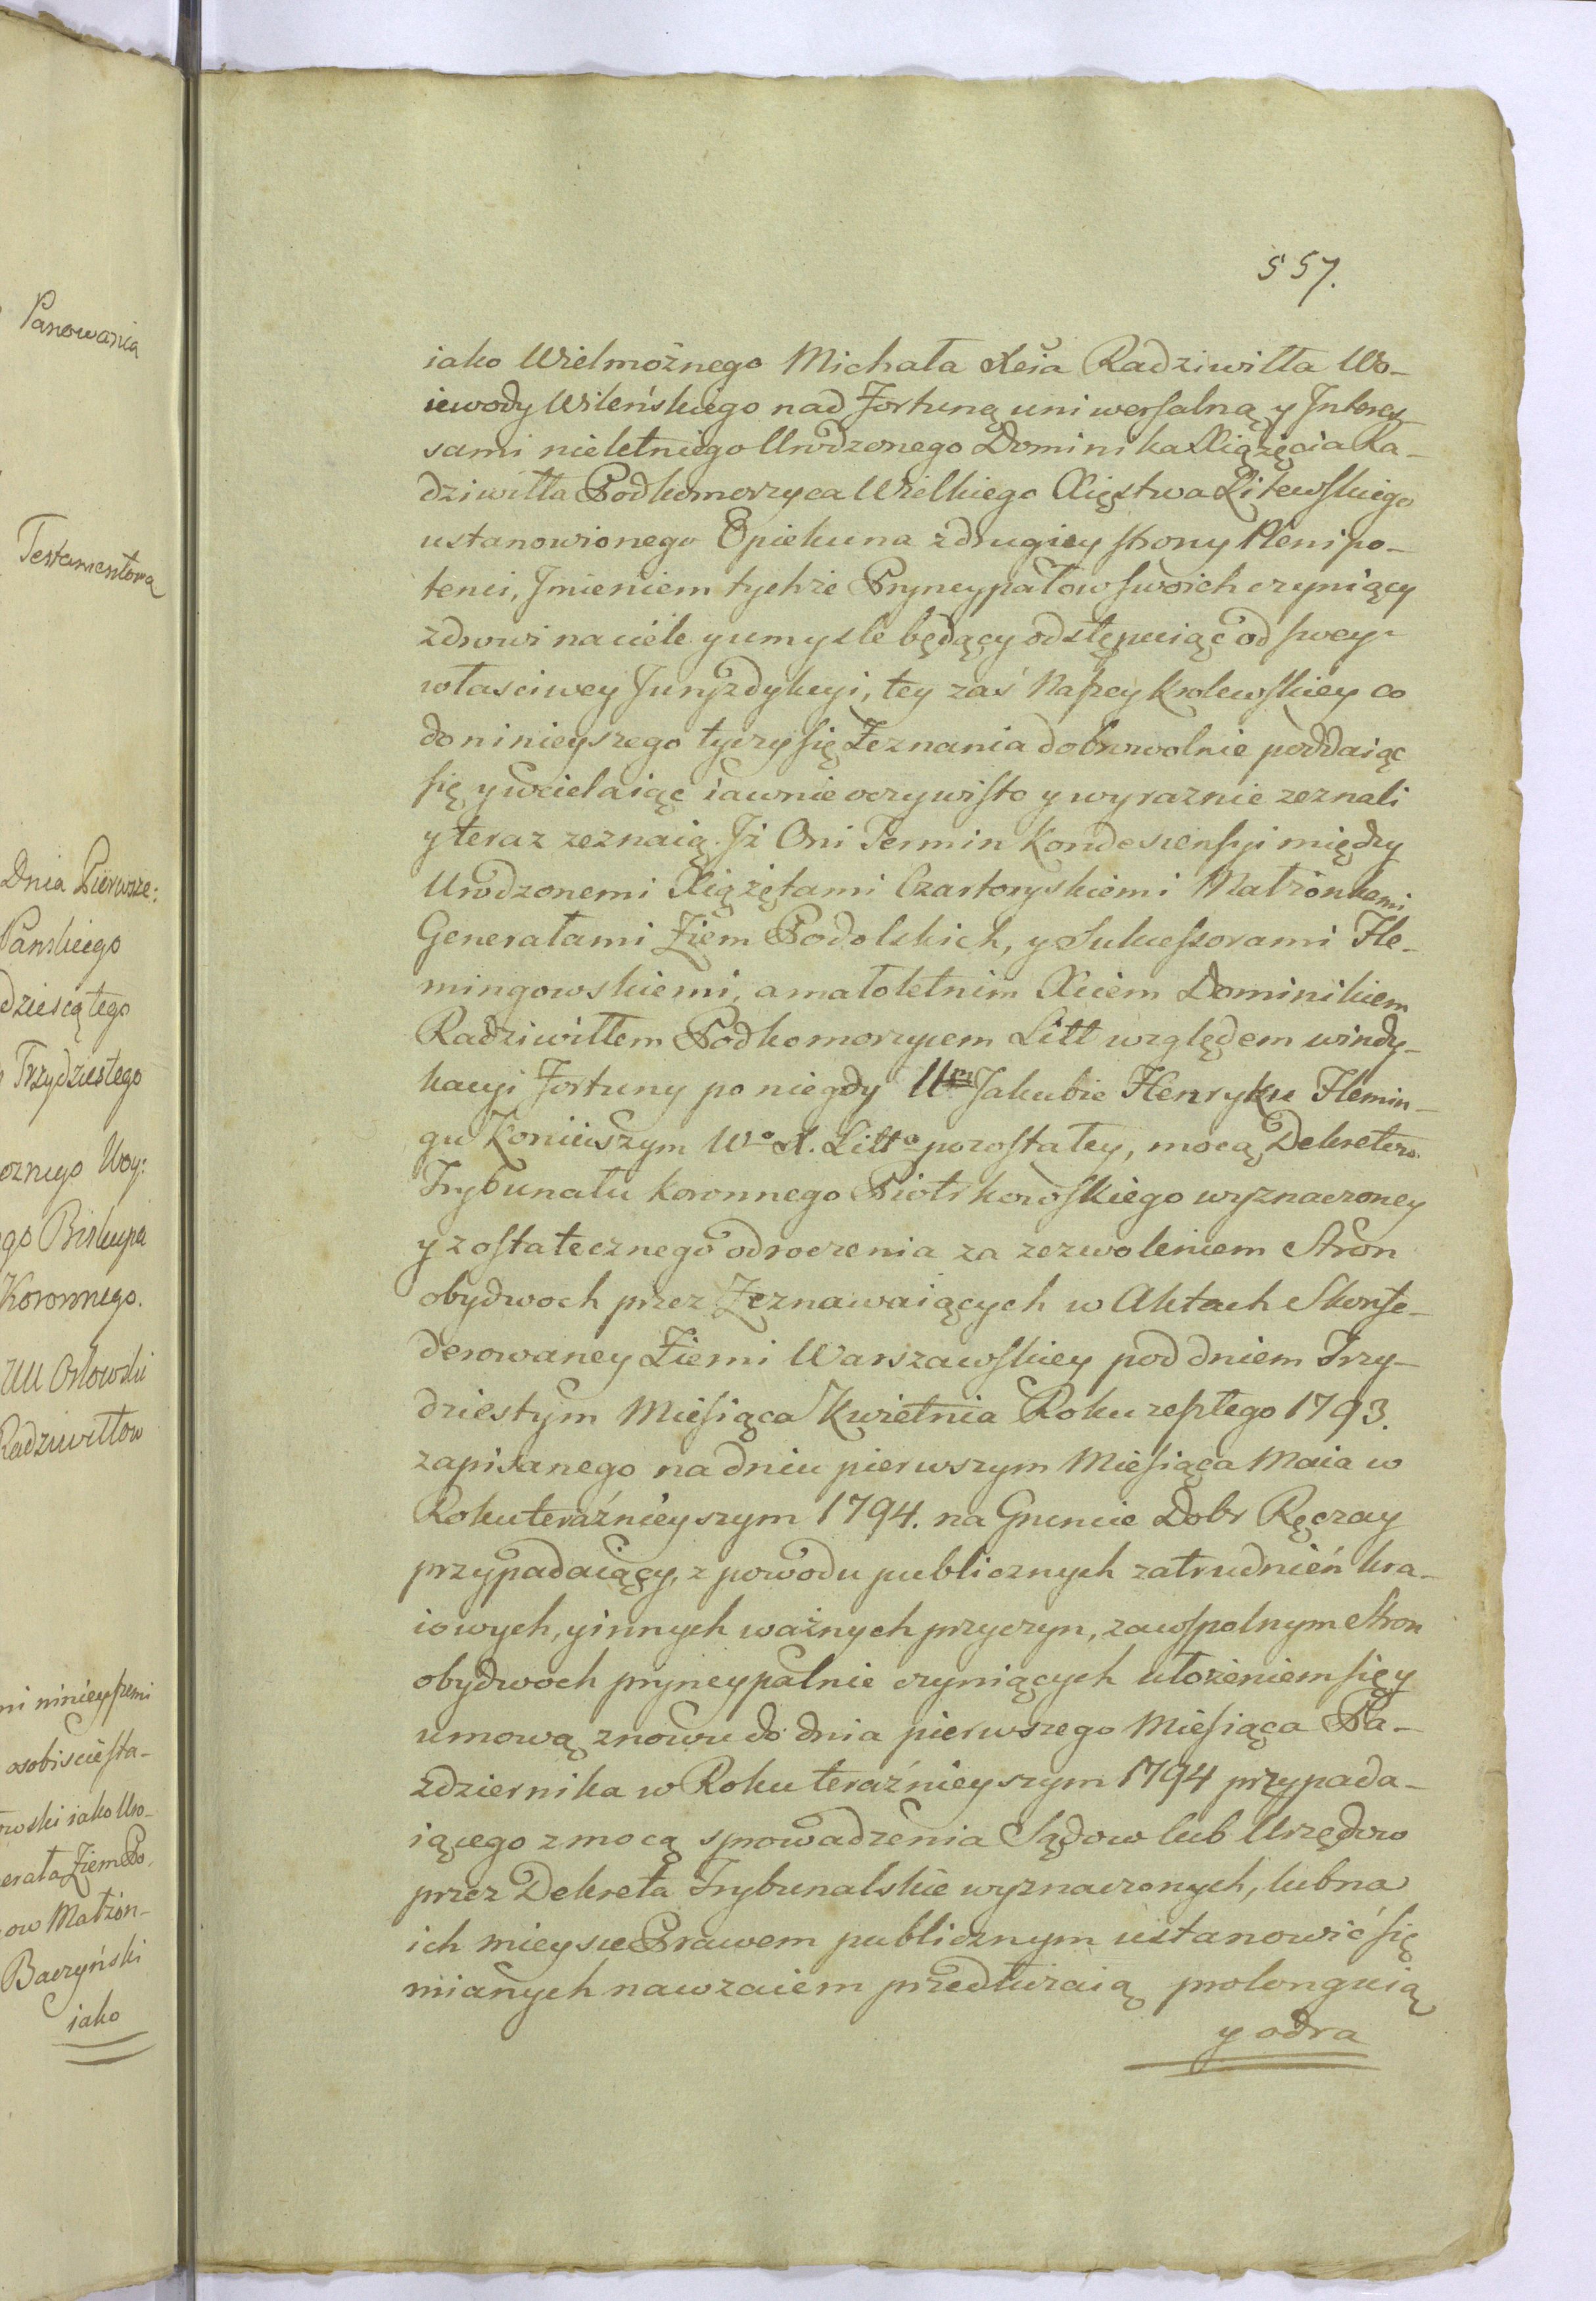 Panowania
Testamentowa
Dnia Pierwsze:
Panskiego
dziesiątego
Trzydziestego
Woy:
Biskupa
Koronnego.
UU Orłowski
Radziwiłłow
ni ninieyszemi
osobiscie sta-
iako Uro-
erała Ziem Po
ow Małżon-
Baczyński
iako
557.
iako Wielmożnego Michała Xcia Radziwiłła Wo-
iewody Wileńskiego nad Fortuną uniwersalną y Interes-
sami nieletniego Urodzonego Dominika Xiążęcia Ra-
dziwiłła Podkomorzyca Wielkiego Xięstwa Litewskiego
ustanowionego Opiekuna z drugiey strony Plenipo-
tenci, Imieniem tychże Pryncypałow swoich czyniący
zdrowi na ciele y umysle będący odstępuiąc od swey
własciwey Juryzdykcyi, tey zaś Naszey Krolewskiey co
do ninieyszego tyczy się Zeznania dobrowolnie poddaiąc
się y wcielaiąc iawnie oczywisto y wyraznie zeznali
y teraz zeznaią. Iż Oni Termin Kondescensyi między
Urodzonemi Xiążętami Czartoryskiemi Małżonkami
Generałami Ziem Podolskich, y Sukcessorami Fle-
mingowskiemi, a małoletnim Xciem Dominikiem
Radziwiłłem Podkomorzycem Litt względem windy-
kacyi Fortuny po niegdy Ur Jakubie Henryku Flemin-
gu Koniuszym Wo X. Litto pozostałey, mocą Dekretow
Trybunału Koronnego Piotrkowskiego wyznaczoney
y z ostatecznego odroczenia za zezwoleniem Stron
obydwoch przez Zeznawaiących w Aktach Skonfe-
derowaney Ziemi Warszawskiey pod dniem Trzy-
dziestym Miesiąca Kwietnia Roku zeszłego 1793.
zapisanego na dniu pierwszym Miesiąca Maia w
Roku teraźnieyszym 1794. na Gruncie Dobr Ręczay
przypadaiący, z powodu publicznych zatrudnień kra-
iowych, y innych ważnych przyczyn, za wspolnym Stron
obydwoch pryncypalnie czyniących ułożeniem się y
umową znowu do dnia pierwszego Miesiąca Pa-
ździernika w Roku teraźnieyszym 1794 przypada-
iącego z mocą sprowadzenia Sądow lub Urzędow
przez Dekreta Trybunalskie wyznaczonych, lub na
ich mieysce Prawem publicznym ustanowić się
mianych nawzaiem przedłużaią prolonguią
y odra